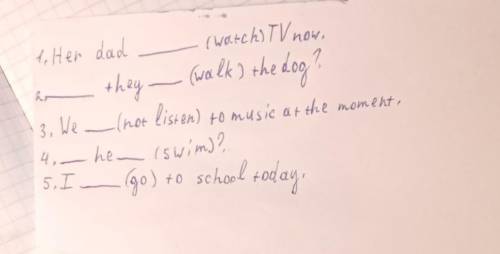 1. Her dad ______ (watch) TV now.
2. ____ they ___ (walk) the dog?
3. We ___ (not listen) to music at the moment.
4. ___ he ___ (swim)?
5. I ____ (go) to school today.